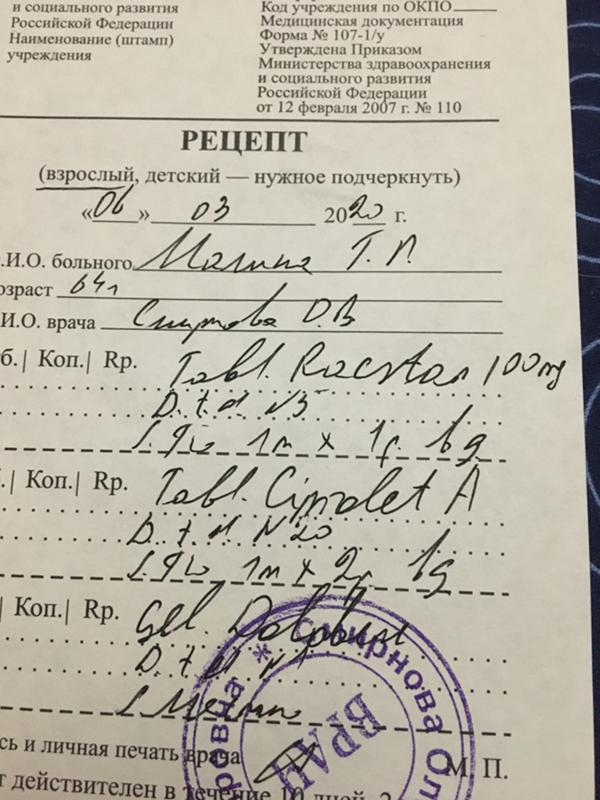 и социального развития
Российской Федерации
Наименование (штамп)
учреждения
Код учреждения по ОКПО
Медицинская документация
Форма № 107-1/у
Утверждена Приказом
Министерства здравоохранения
и социального развития
Российской Федерации
от 12 февраля 2007 г. № 110
РЕЦЕПТ
(взрослый, детский — нужное подчеркнуть)
«06» 03 2020 г.
.И.О. больного Т. П.
озраст 64
И.О. врача Смирнова О.В
б.| Коп.| Rp. Tabl. 100 mg
D. t. d. N5
S. 1т x 1р.
.| Коп.| Rp. Tabl. Ciprolet A
D. t. d N 20
S. 1т x 2р
| Коп.| Rp. Gel.
D. t. d N1
S. Местно
Смирнова Ол
ровна
ВРАЧ
сь и личная печать врача М. П.
т действителен в течение 10 дней, 2